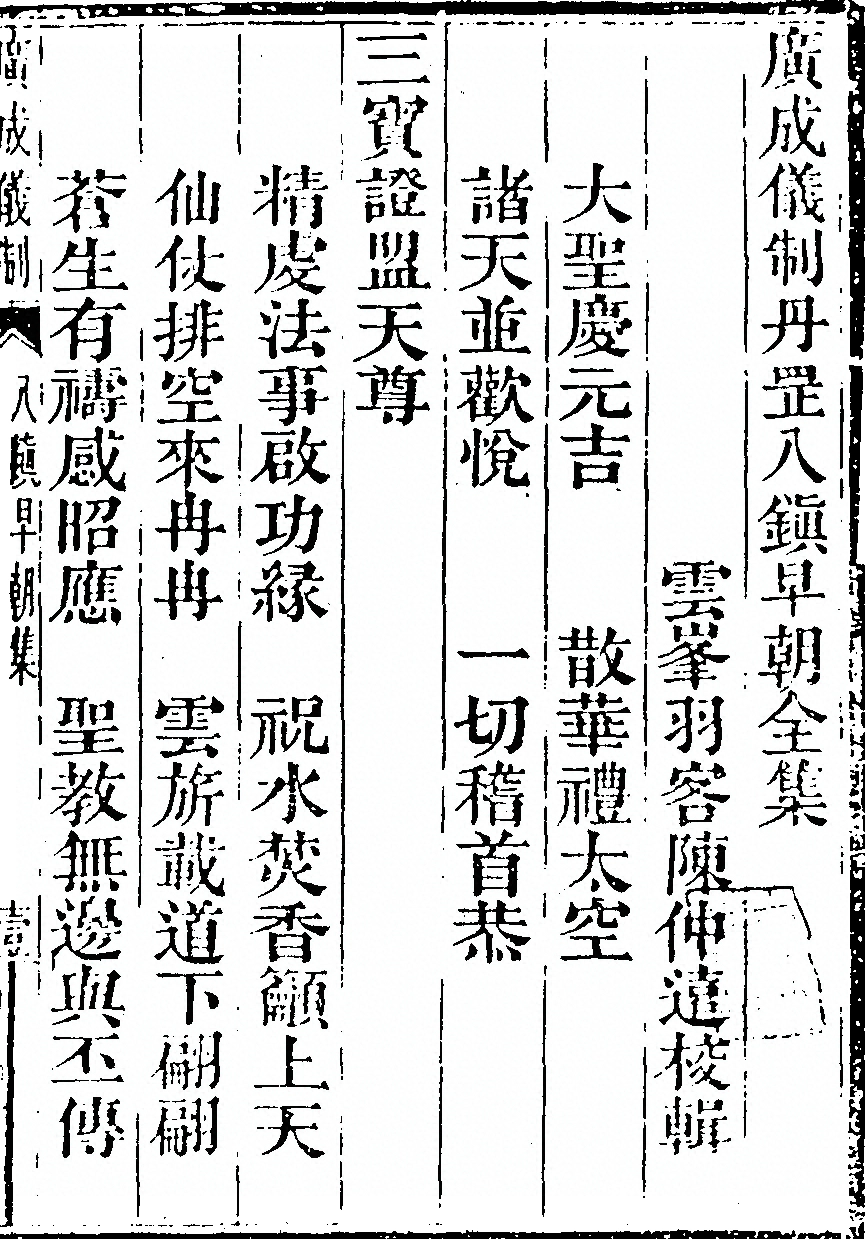 廣成儀制丹罡八鎮早朝全集
雲峯羽客陳仲遠校輯
大聖慶元吉　散華禮太空
諸天並歡悅　一切稽首恭
三寶證盟天尊
精虔法事啟功緣　祝水焚香籲上天
仙仗排空來冉冉　雲旂載道下翩翩
蒼生有禱咸昭應　聖教無邊與丕傳
廣成儀制　八鎮早朝集　壹